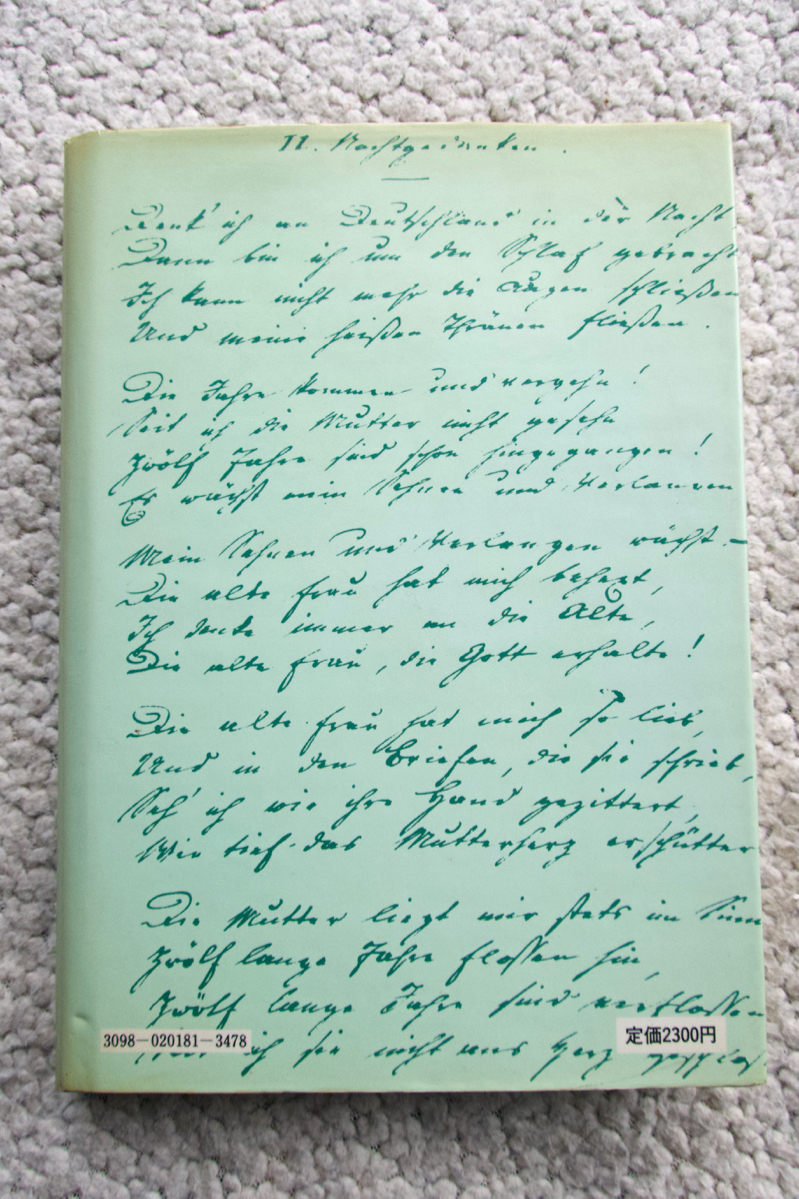 II. Nachtgedanken.
Denk' ich an Deutschland in der Nacht
Dann bin ich um den Schlaf gebracht
Ich kann nicht mehr die Augen schließen
Und meine heißen Thränen fließen.
Die Jahre kommen und vergehn!
Seit ich die Mutter nicht gesehn
Zwölf Jahre sind schon hingegangen!
Es wächst mein Sehnen und Verlangen
Mein Sehnen und Verlangen wächst.—
Die alte Frau hat mich behext,
Ich denke immer an die Alte,
Die alte Frau, die Gott erhalte!
Die alte Frau hat mich so lieb,
Und in den Briefen, die sie schrieb,
Seh' ich wie ihre Hand gezittert,
Wie tief das Mutterherz erschütter
Die Mutter liegt mir stets im Sinn
Zwölf lange Jahre flossen hin,
Zwölf lange Jahre sind verflossen
ich sie nicht ans Herz geschlos
3098-020181-3478
定価2300円